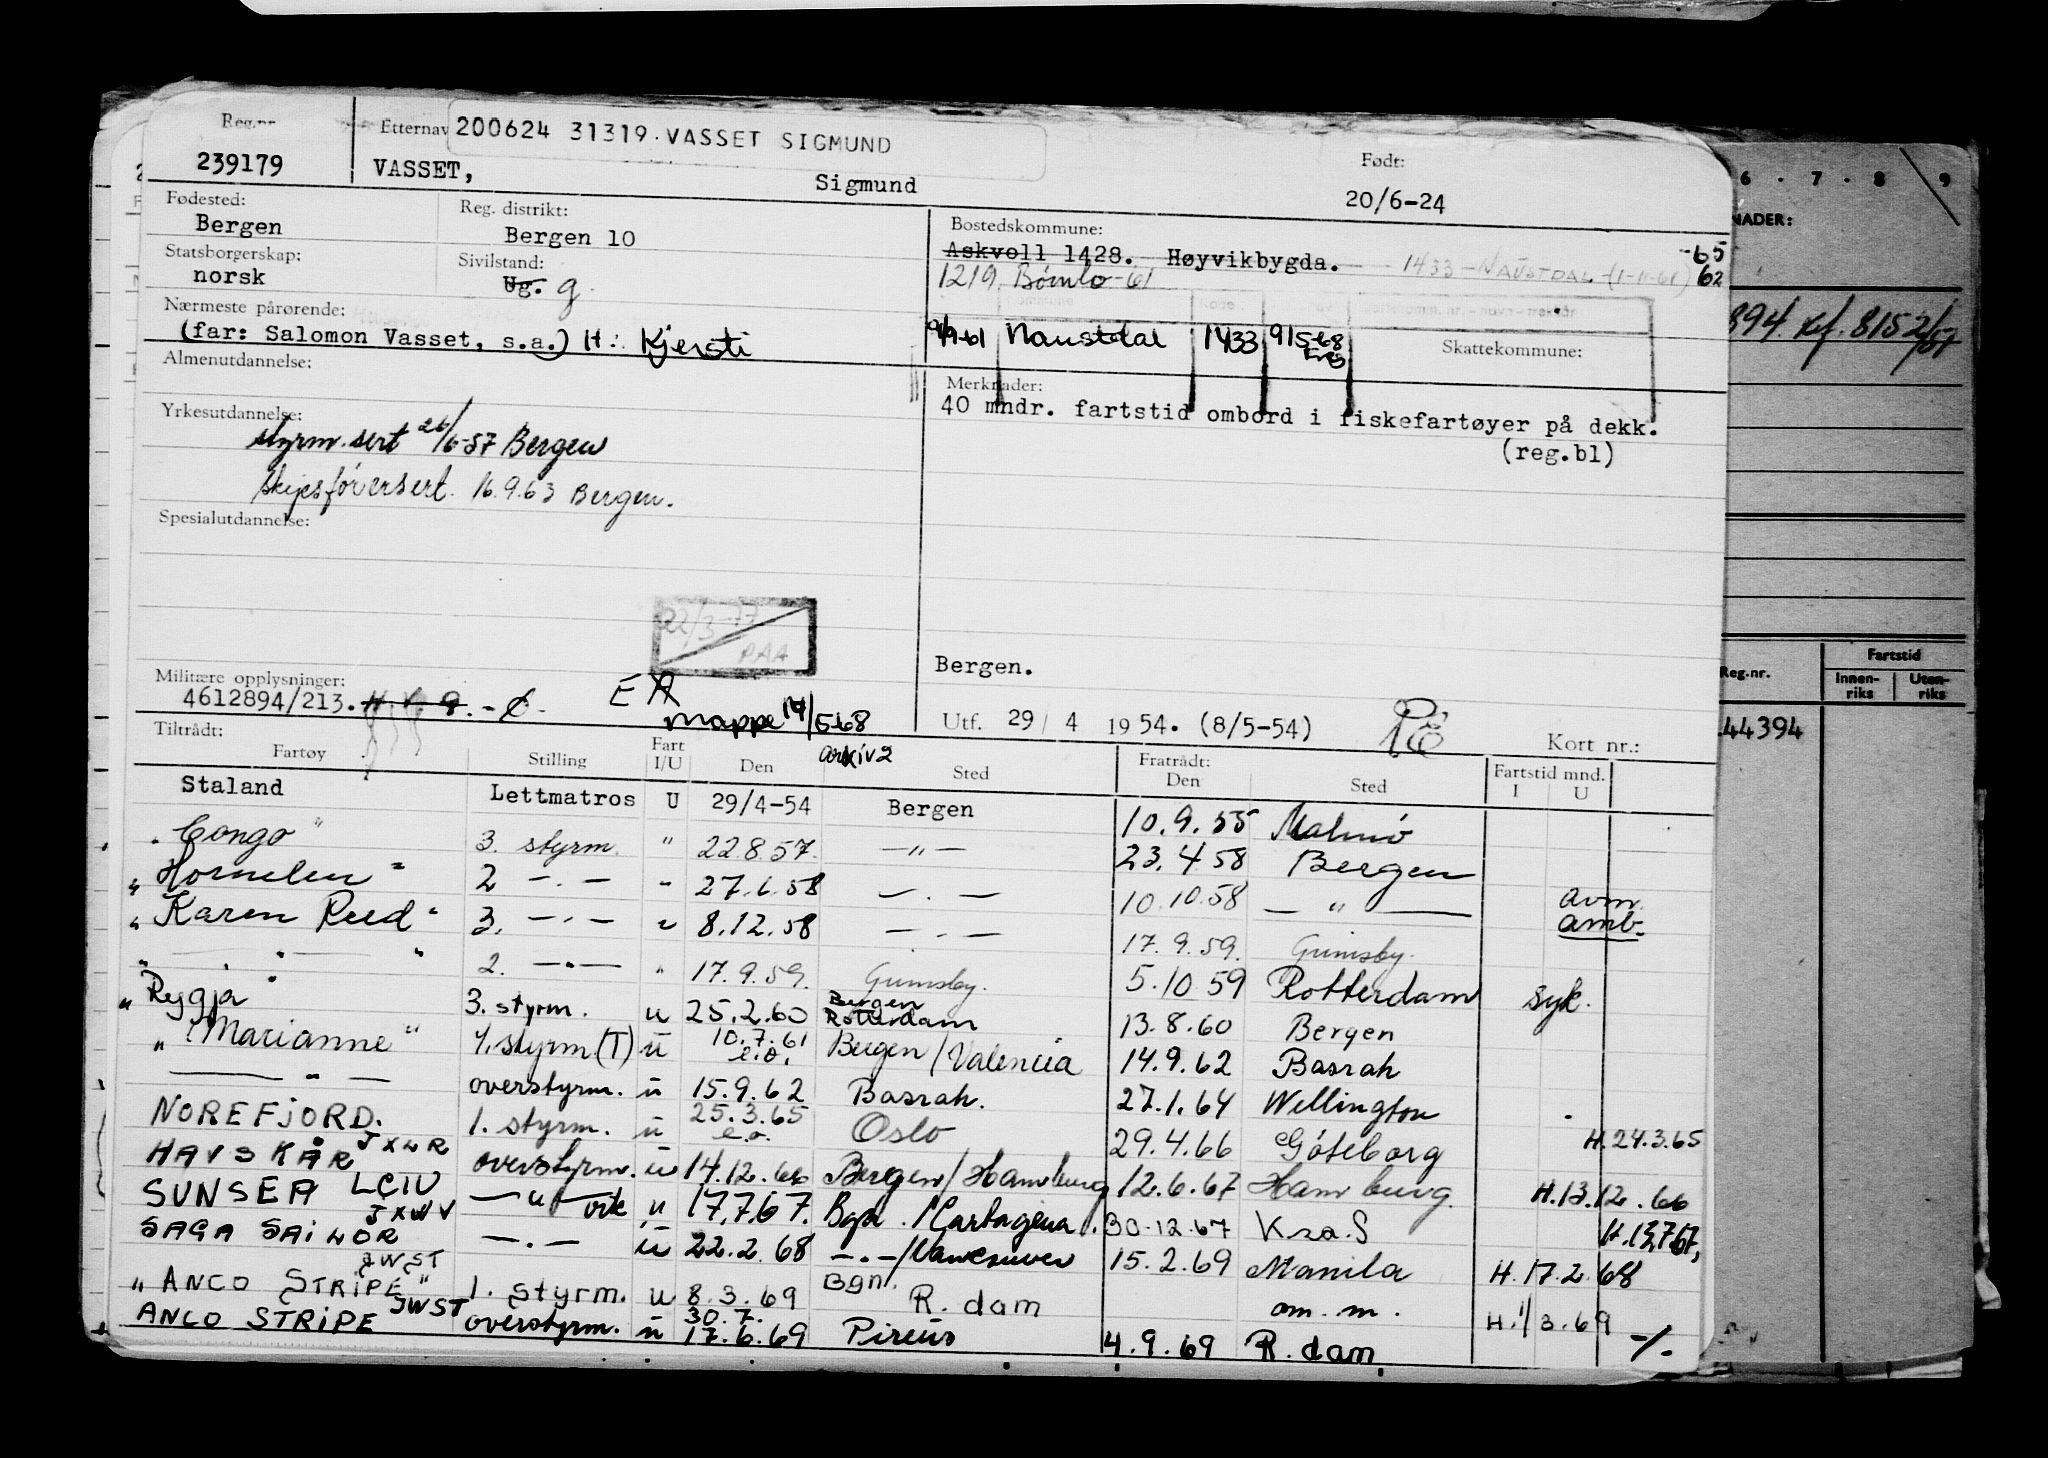 Reg.nr. Etternav 200624 31319 VASSET SIGMUND Født:
239179 VASSET, Sigmund 20/6-24
Fødested: Reg. distrikt: Bostedskommune:
Bergen Bergen 10 Askvoll 1428. Høyvikbygda. 1433 - NAUSTDAL (1-11-61) -65
Statsborgerskap: Sivilstand: 1219 Bømlo -61 62
norsk Ug. g.
Nærmeste pårørende:
(far: Salomon Vasset, s.a.) H: Kjersti Naustdal 1433 Skattekommune:
Almenutdannelse: Merknader:
40 mndr. fartstid ombord i fiskefartøyer på dekk.
(reg.bl)
Yrkesutdannelse:
styrm.sert 26/6-57 Bergen
Skipsførersert. 16.9.63 Bergen.
Spesialutdannelse:
22/3-77
PAA
Bergen.
Militære opplysninger:
4612894/213.
Mappe 14/5-68
arkiv 2
Utf. 29/4 1954. (8/5-54)
Tiltrådt: Fratrådt: Kort nr.:
Fartøy Stilling Fart I/U Den Sted Den Sted Fartstid mnd. I U
Staland Lettmatros U 29/4-54 Bergen 10.9.55 Malmö
"Congo" 3. styrm. " 22.8.57. —"— 23.4.58 Bergen
"Hornelen" 2 —.— " 27.6.58 —.— 10.10.58 —"— avm.
"Karen Reed" 3. —.— " 8.12.58 —.— 17.9.59. Grimsby. amb.
"—"—" 2. —"— " 17.9.59. Grimsby. 5.10.59 Rotterdam syk.
"Rygja" 3. styrm. u 25.2.60 Bergen Rotterdam 13.8.60 Bergen
"Marianne" 1. styrm (T) u 10.7.61 e.o. Bergen/Valencia 14.9.62 Basrah
—"— overstyrm. u 15.9.62 Basrah. 27.1.64 Wellington
NOREFJORD. 1. styrm. u 25.3.65 e.o. Oslo 29.4.66 Göteborg H.24.3.65
HAVSKÅR JXWR overstyrm. u 14.12.66 Bergen/Hamburg 12.6.67 Hamburg. H.13.12.66
SUNSEA LCIU —"— u 17.7.67. Bgn./Cartagena. 30.12.67 Kra.S H.13.7.67,
SAGA SAILOR JXWV —.— u 22.2.68 —.—/Vancouver 15.2.69 Manila H.17.2.68
"ANCO STRIPE" JWST 1. styrm. u 8.3.69 Bgn./R.dam om.m. H.1/3.69
ANCO STRIPE JWST overstyrm. u 30.7. 17.6.69 Pireus 4.9.69 R.dam -/.
6 . 7 . 8 . 9
NADER:
894. Kf. 8152/57
Reg.nr. Fartstid
Innen-riks Uten-riks
44394